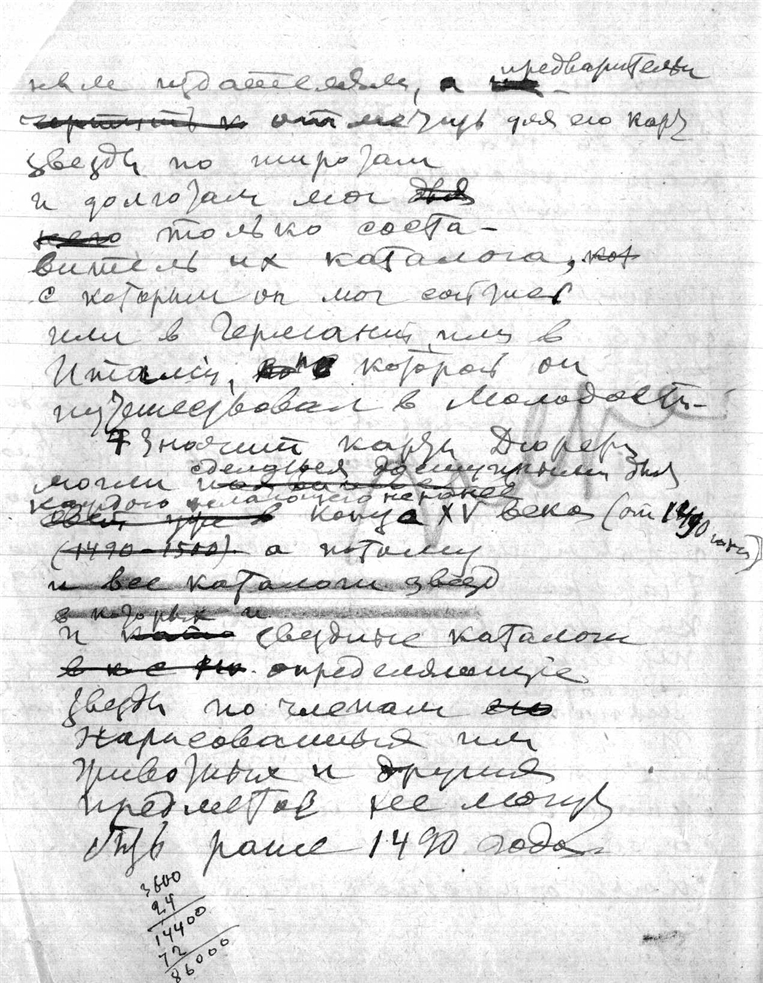 ным издателям, а предварительн
отметить для его карт
звезды по широтам
и долготам мог для
него только соста-
витель их каталога, кот
с которым он мог
или в Германии, или в
Италии, по которой он
путешествовал в молодости-
Значит карты Дюрера
сделаться доступными для
могли
каждого желающего не ранее
конца XV века (от 1490 года)
(1490-1500) а потому
и все каталоги звезд
в которых и
и звездные каталоги
определяющие
звезды по членам
нарисованных им
животных и других
предметов не могут
быть ранее 1490 года
3600
24
14400
72
86000